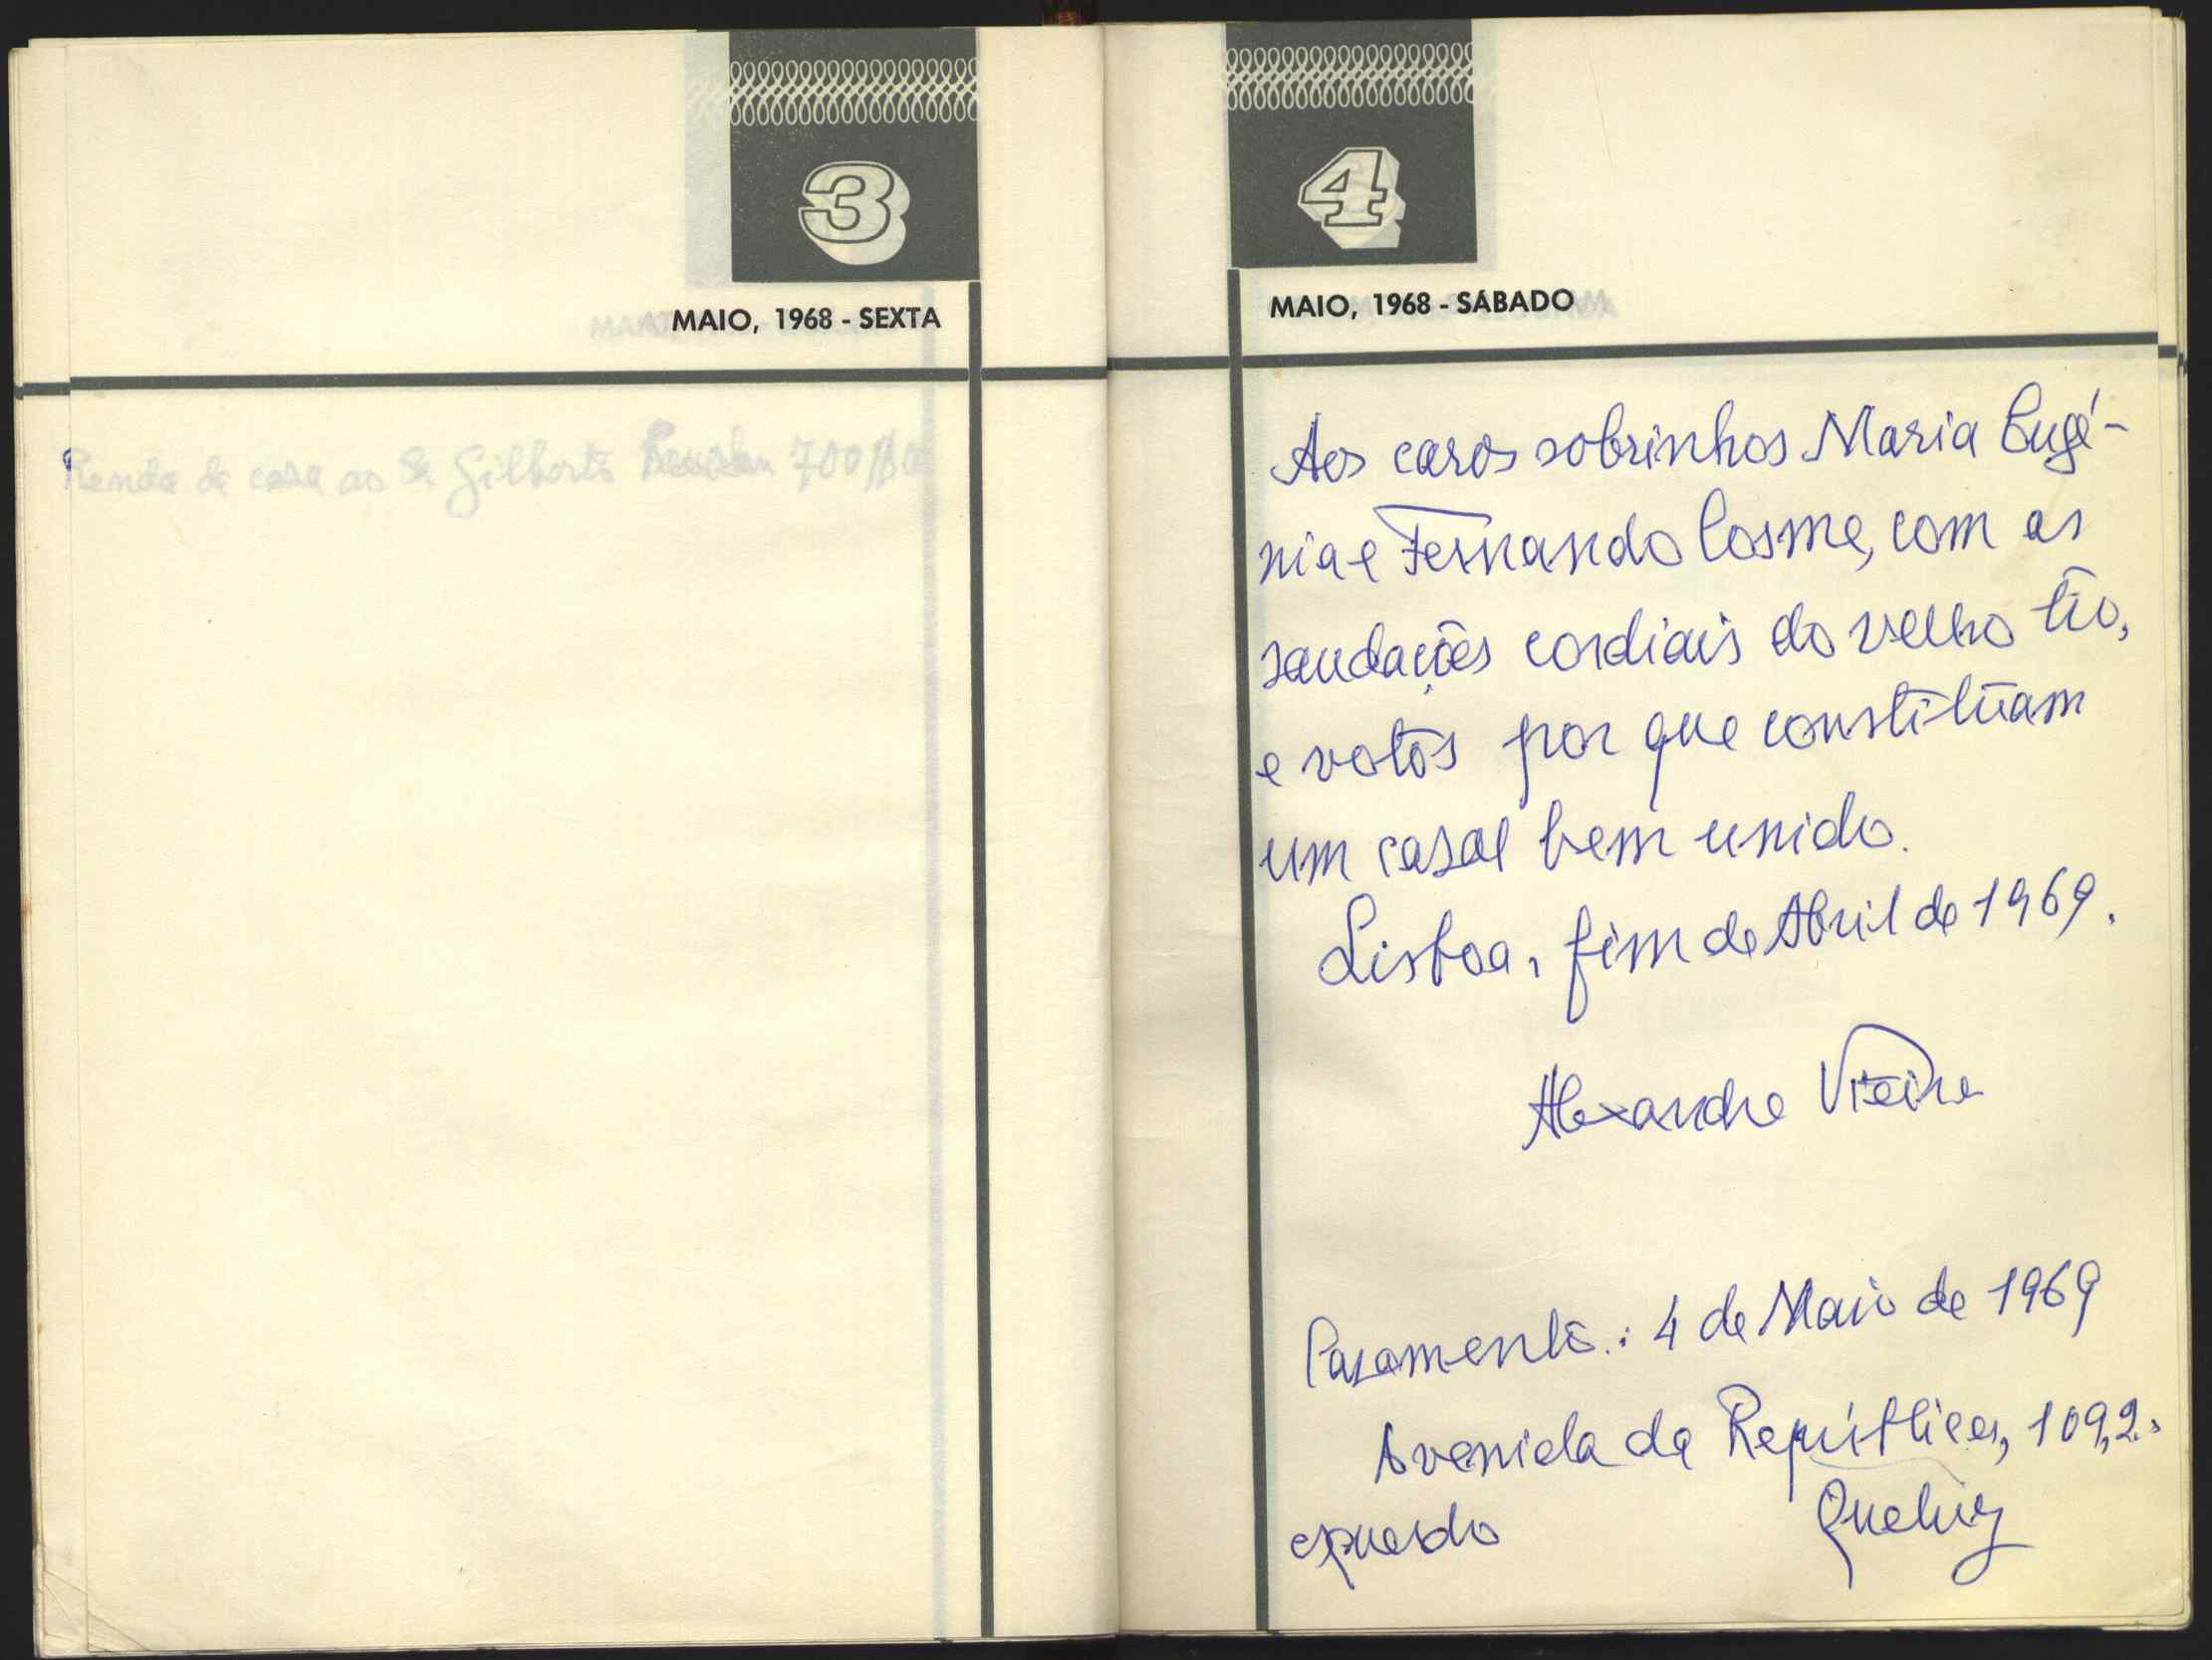 3
MAIO, 1968 - SEXTA
Renda de casa ao Sr Gilberto 700$00
4
MAIO, 1968 - SÁBADO
Aos caros sobrinhos Maria Eugé-
nia e Fernando Cosme, com as
saudações cordiais do velho tio,
e votos por que constitúam
um casal bem unido.
Lisboa, fim de Abril de 1969.
Alexandre Vieira
Casamento.: 4 de Maio de 1969
Avenida da República, 109, 2.º
esquerdo Queluz